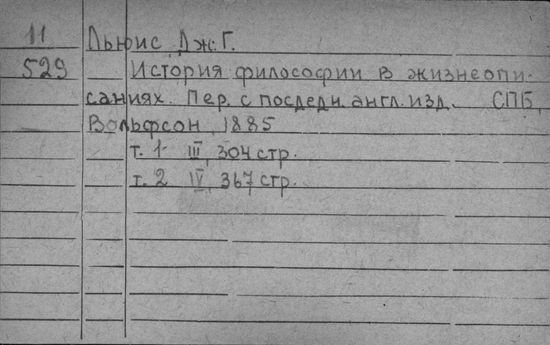 11 Льюис Дж. Г.
529 История философии в жизнеопи-
саниях. Пер. с последн. англ. изд. СПБ,
Вольфсон, 1885
т. 1 III, 304 стр.
т. 2 IV, 367 стр.